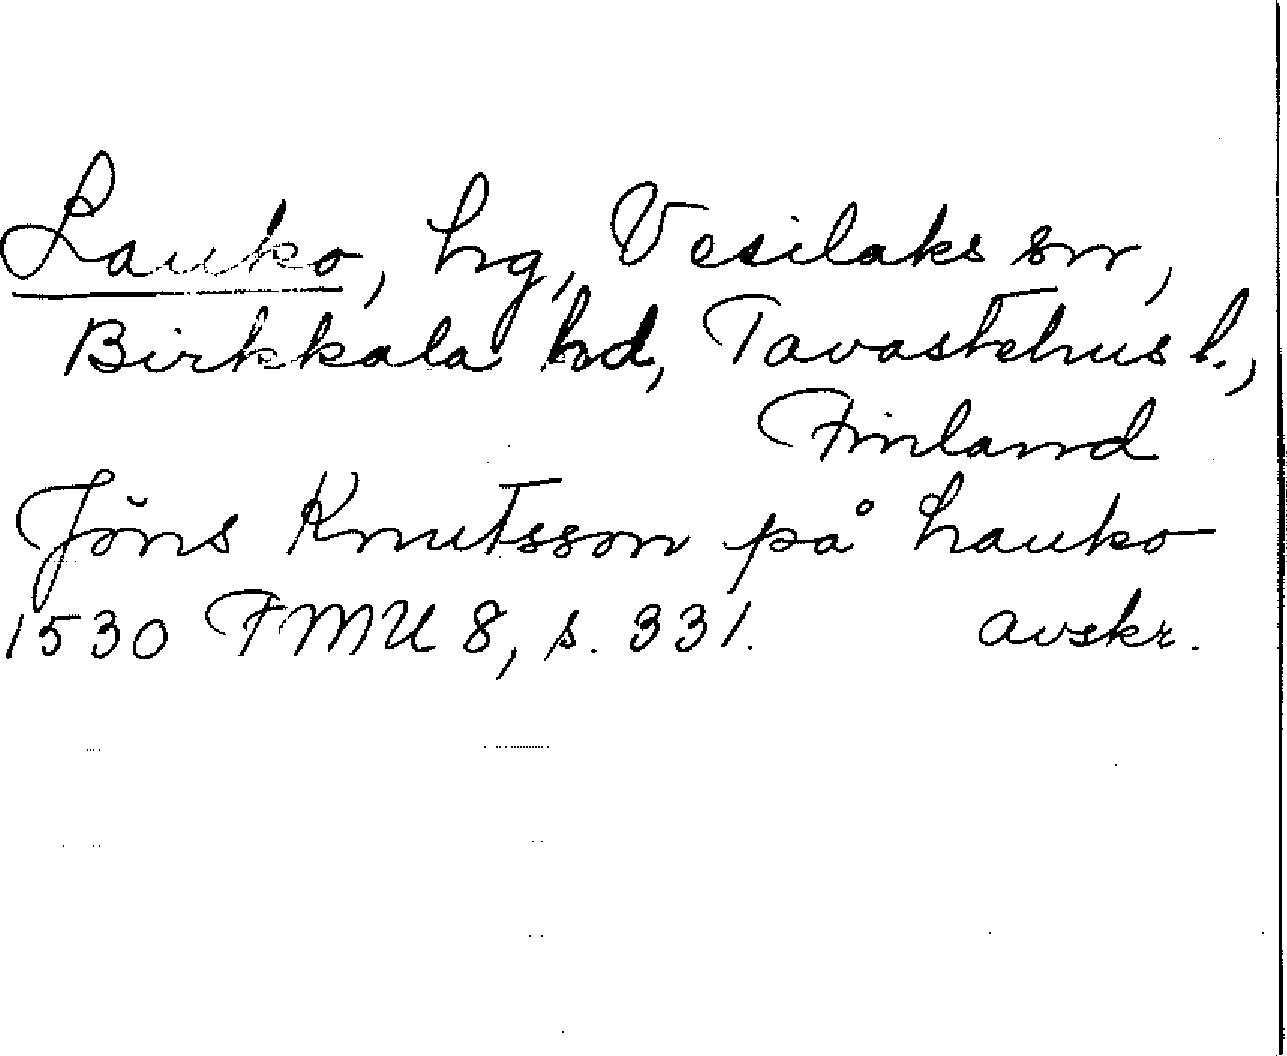 Lauko, hg, Vesilaks sn,
Birkkala hd, Tavastehus l.,
Finland
Jöns Knutsson på Lauko
1530 FMU 8, s. 331. avskr.